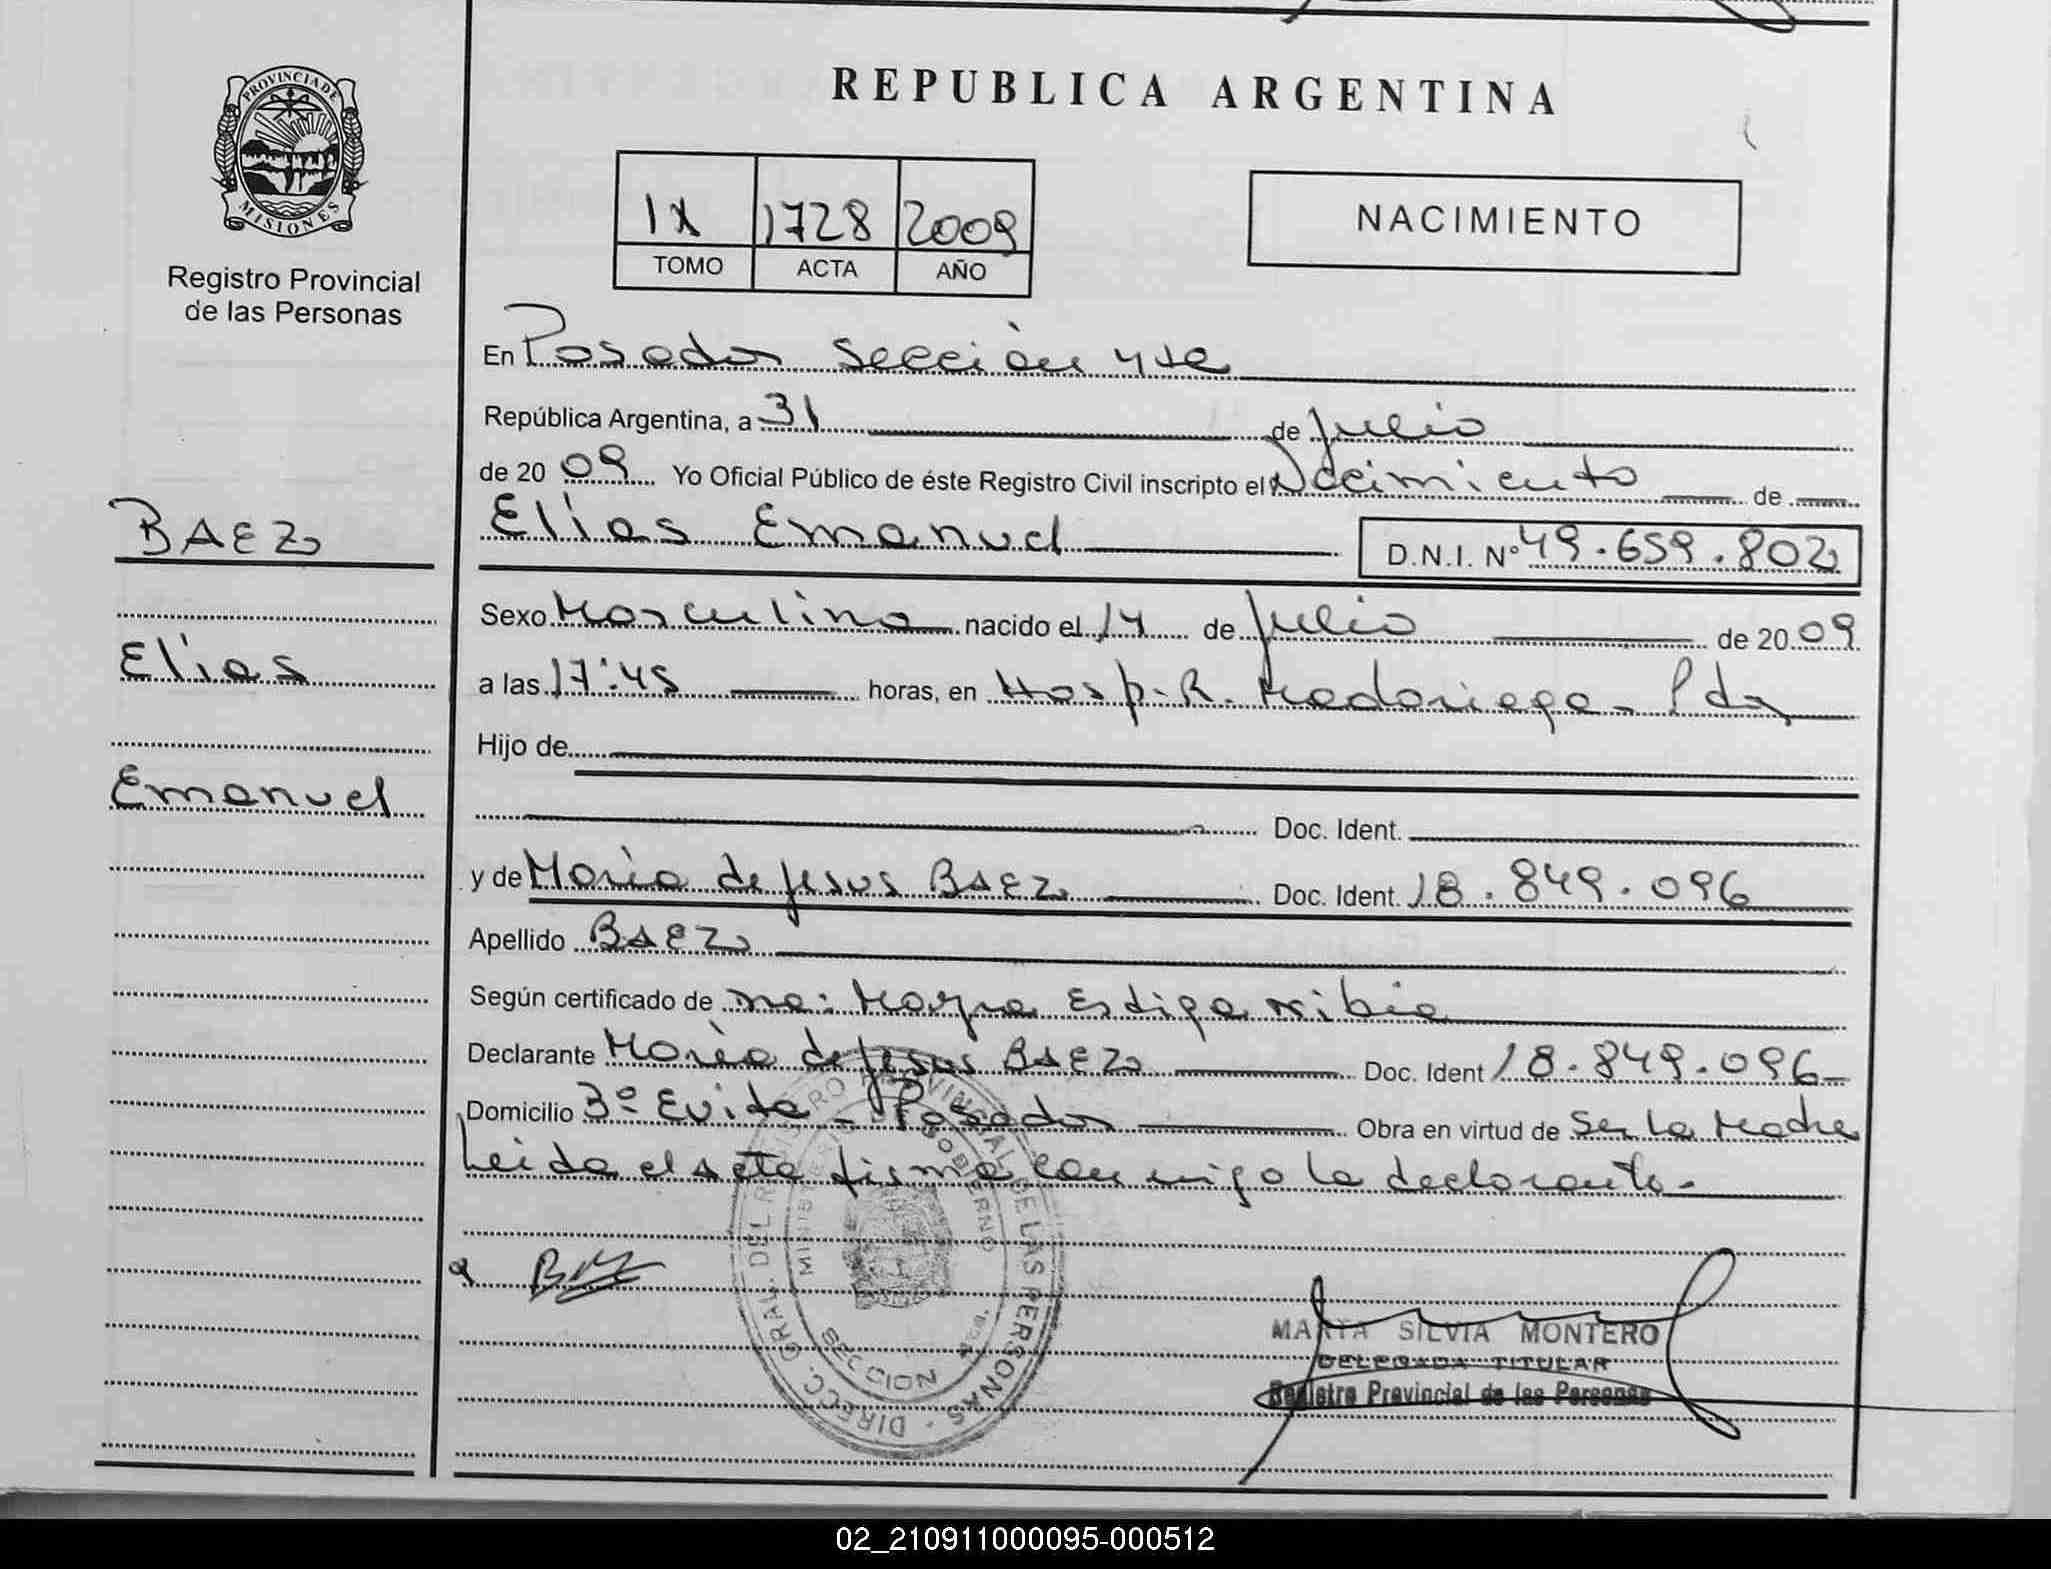 REPUBLICA ARGENTINA
PROVINCIA DE MISIONES
Registro Provincial
de las Personas
IX 1728 2009
TOMO ACTA AÑO
NACIMIENTO
En Posadas Sección 4ta
República Argentina, a 31 de Julio
de 2009 Yo Oficial Público de éste Registro Civil inscripto el Nacimiento de
Elías Emanuel D.N.I. Nº 49.659.802
Sexo Masculino nacido el 14 de Julio de 2009
a las 17:45 horas, en Hosp. R. Madariaga - Pdas
Hijo de
Doc. Ident.
y de María de Jesus BAEZ Doc. Ident. 18.849.096
Apellido BAEZ
Según certificado de Mayra Estigarribia
Declarante María de Jesus BAEZ Doc. Ident 18.849.096
Domicilio Bº Evita - Posadas Obra en virtud de Ser la Madre
Leida el acta firma conmigo la declarante.
BAEZ
Elías
Emanuel
DIRECC. GRAL. DEL REGISTRO PROVINCIAL DE LAS PERSONAS
GOBIERNO
SECCION
MARTA SILVIA MONTERO
DELEGADA TITULAR
Registro Provincial de las Personas
02_210911000095-000512